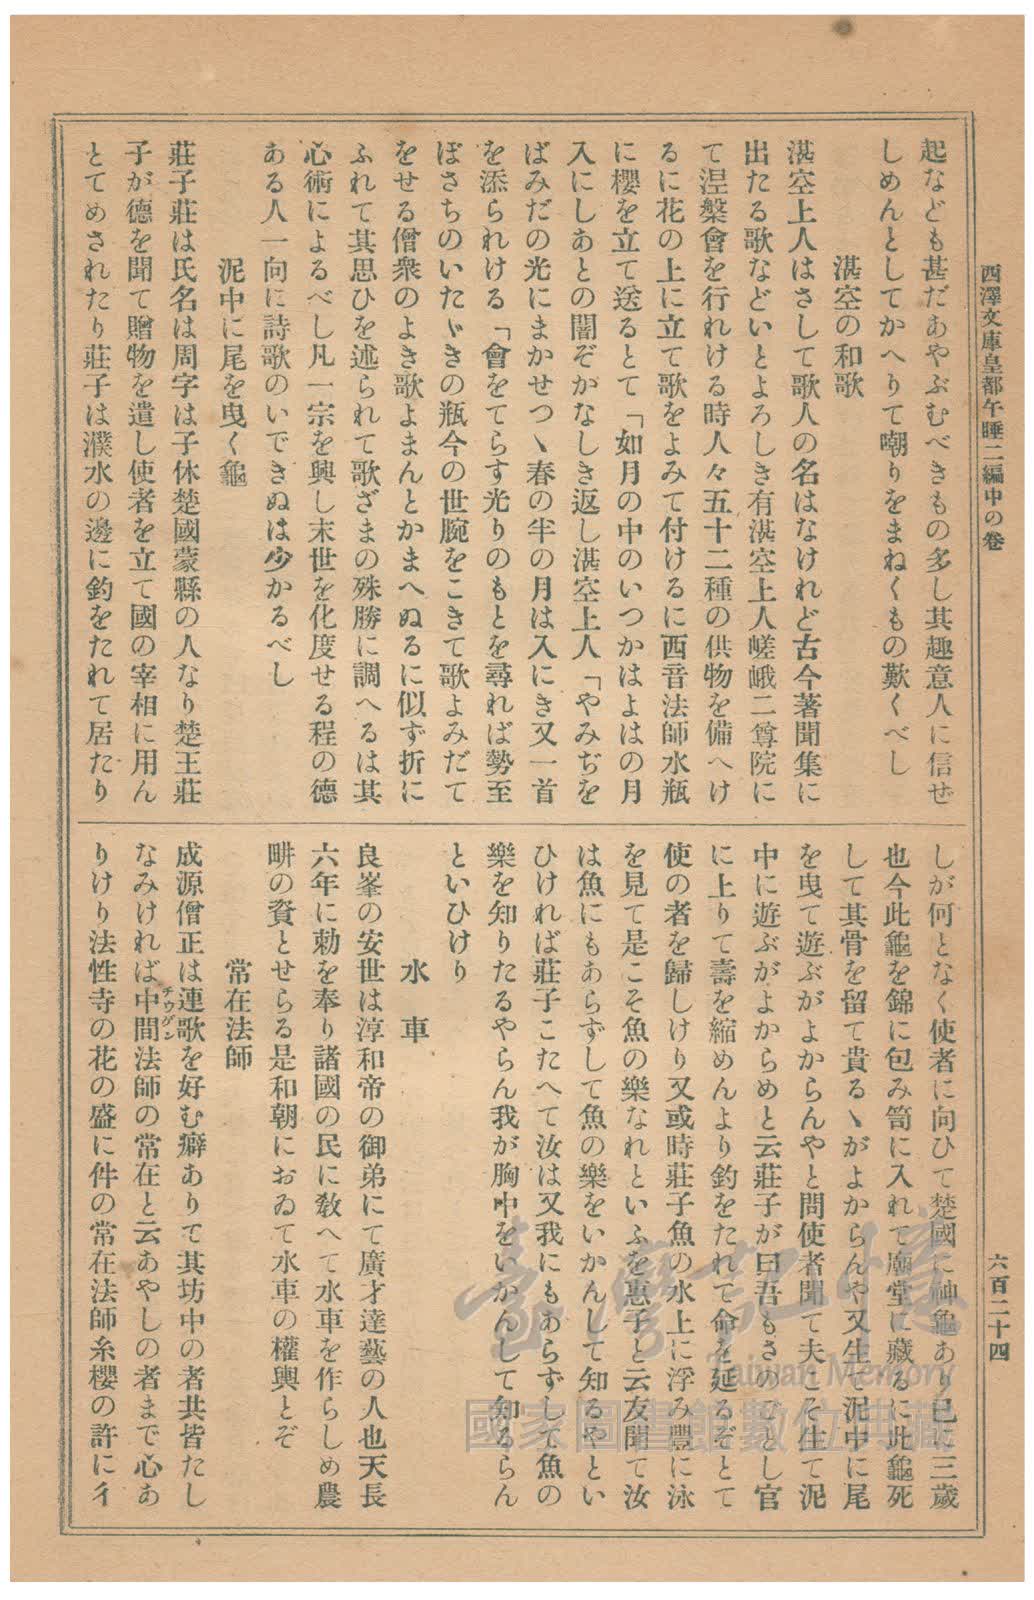 西澤文庫皇都午睡二編中の卷
六百二十四
起なども甚だあやぶむべきもの多し其趣意人に信せ
しめんとしてかへりて嘲りをまねくもの歎くべし
湛空の和歌
湛空上人はさして歌人の名はなけれど古今著聞集に
出たる歌などいとよろしき有湛空上人嵯峨二尊院に
て涅槃會を行れける時人々五十二種の供物を備へけ
るに花の上に立て歌をよみて付けるに西音法師水瓶
に櫻を立て送るとて「如月の中のいつかはよはの月
入にしあとの闇ぞかなしき返し湛空上人「やみぢを
ばみだの光にまかせつゝ春の半の月は入にき又一首
を添られける「會をてらす光りのもとを尋れば勢至
ぼさちのいたゞきの瓶今の世腕をこきて歌よみだて
をせる僧衆のよき歌よまんとかまへぬるに似ず折に
ふれて其思ひを述られて歌ざまの殊勝に調へるは其
心術によるべし凡一宗を興し末世を化度せる程の德
ある人一向に詩歌のいできぬは少かるべし
泥中に尾を曳く龜
莊子莊は氏名は周字は子休楚國蒙縣の人なり楚王莊
子が德を聞て贈物を遣し使者を立て國の宰相に用ん
とてめされたり莊子は濮水の邊に釣をたれて居たり
しが何となく使者に向ひて楚國に神龜あり已に三歲
也今此龜を錦に包み笥に入れて廟堂に藏るに此龜死
して其骨を留て貴るゝがよからんや又生て泥中に尾
を曳て遊ぶがよからんやと問使者聞て夫こそ生て泥
中に遊ぶがよからめと云莊子が曰吾もさのごとし官
に上りて壽を縮めんより釣をたれて命を延るぞとて
使の者を歸しけり又或時莊子魚の水上に浮み豐に泳
を見て是こそ魚の樂なれといふを惠子と云友聞て汝
は魚にもあらずして魚の樂をいかんして知るやとい
ひければ莊子こたへて汝は又我にもあらずして魚の
樂を知りたるやらん我が胸中をいかんして知るらん
といひけり
水車
良峯の安世は淳和帝の御弟にて廣才達藝の人也天長
六年に勅を奉り諸國の民に敎へて水車を作らしめ農
畊の資とせらる是和朝におゐて水車の權輿とぞ
常在法師
成源僧正は連歌を好む癖ありて其坊中の者共皆たし
なみければ中間法師の常在と云あやしの者まで心あ
チウゲン
りけり法性寺の花の盛に件の常在法師糸櫻の許に彳
臺灣記憶
Taiwan Memory
國家圖書館數位典藏